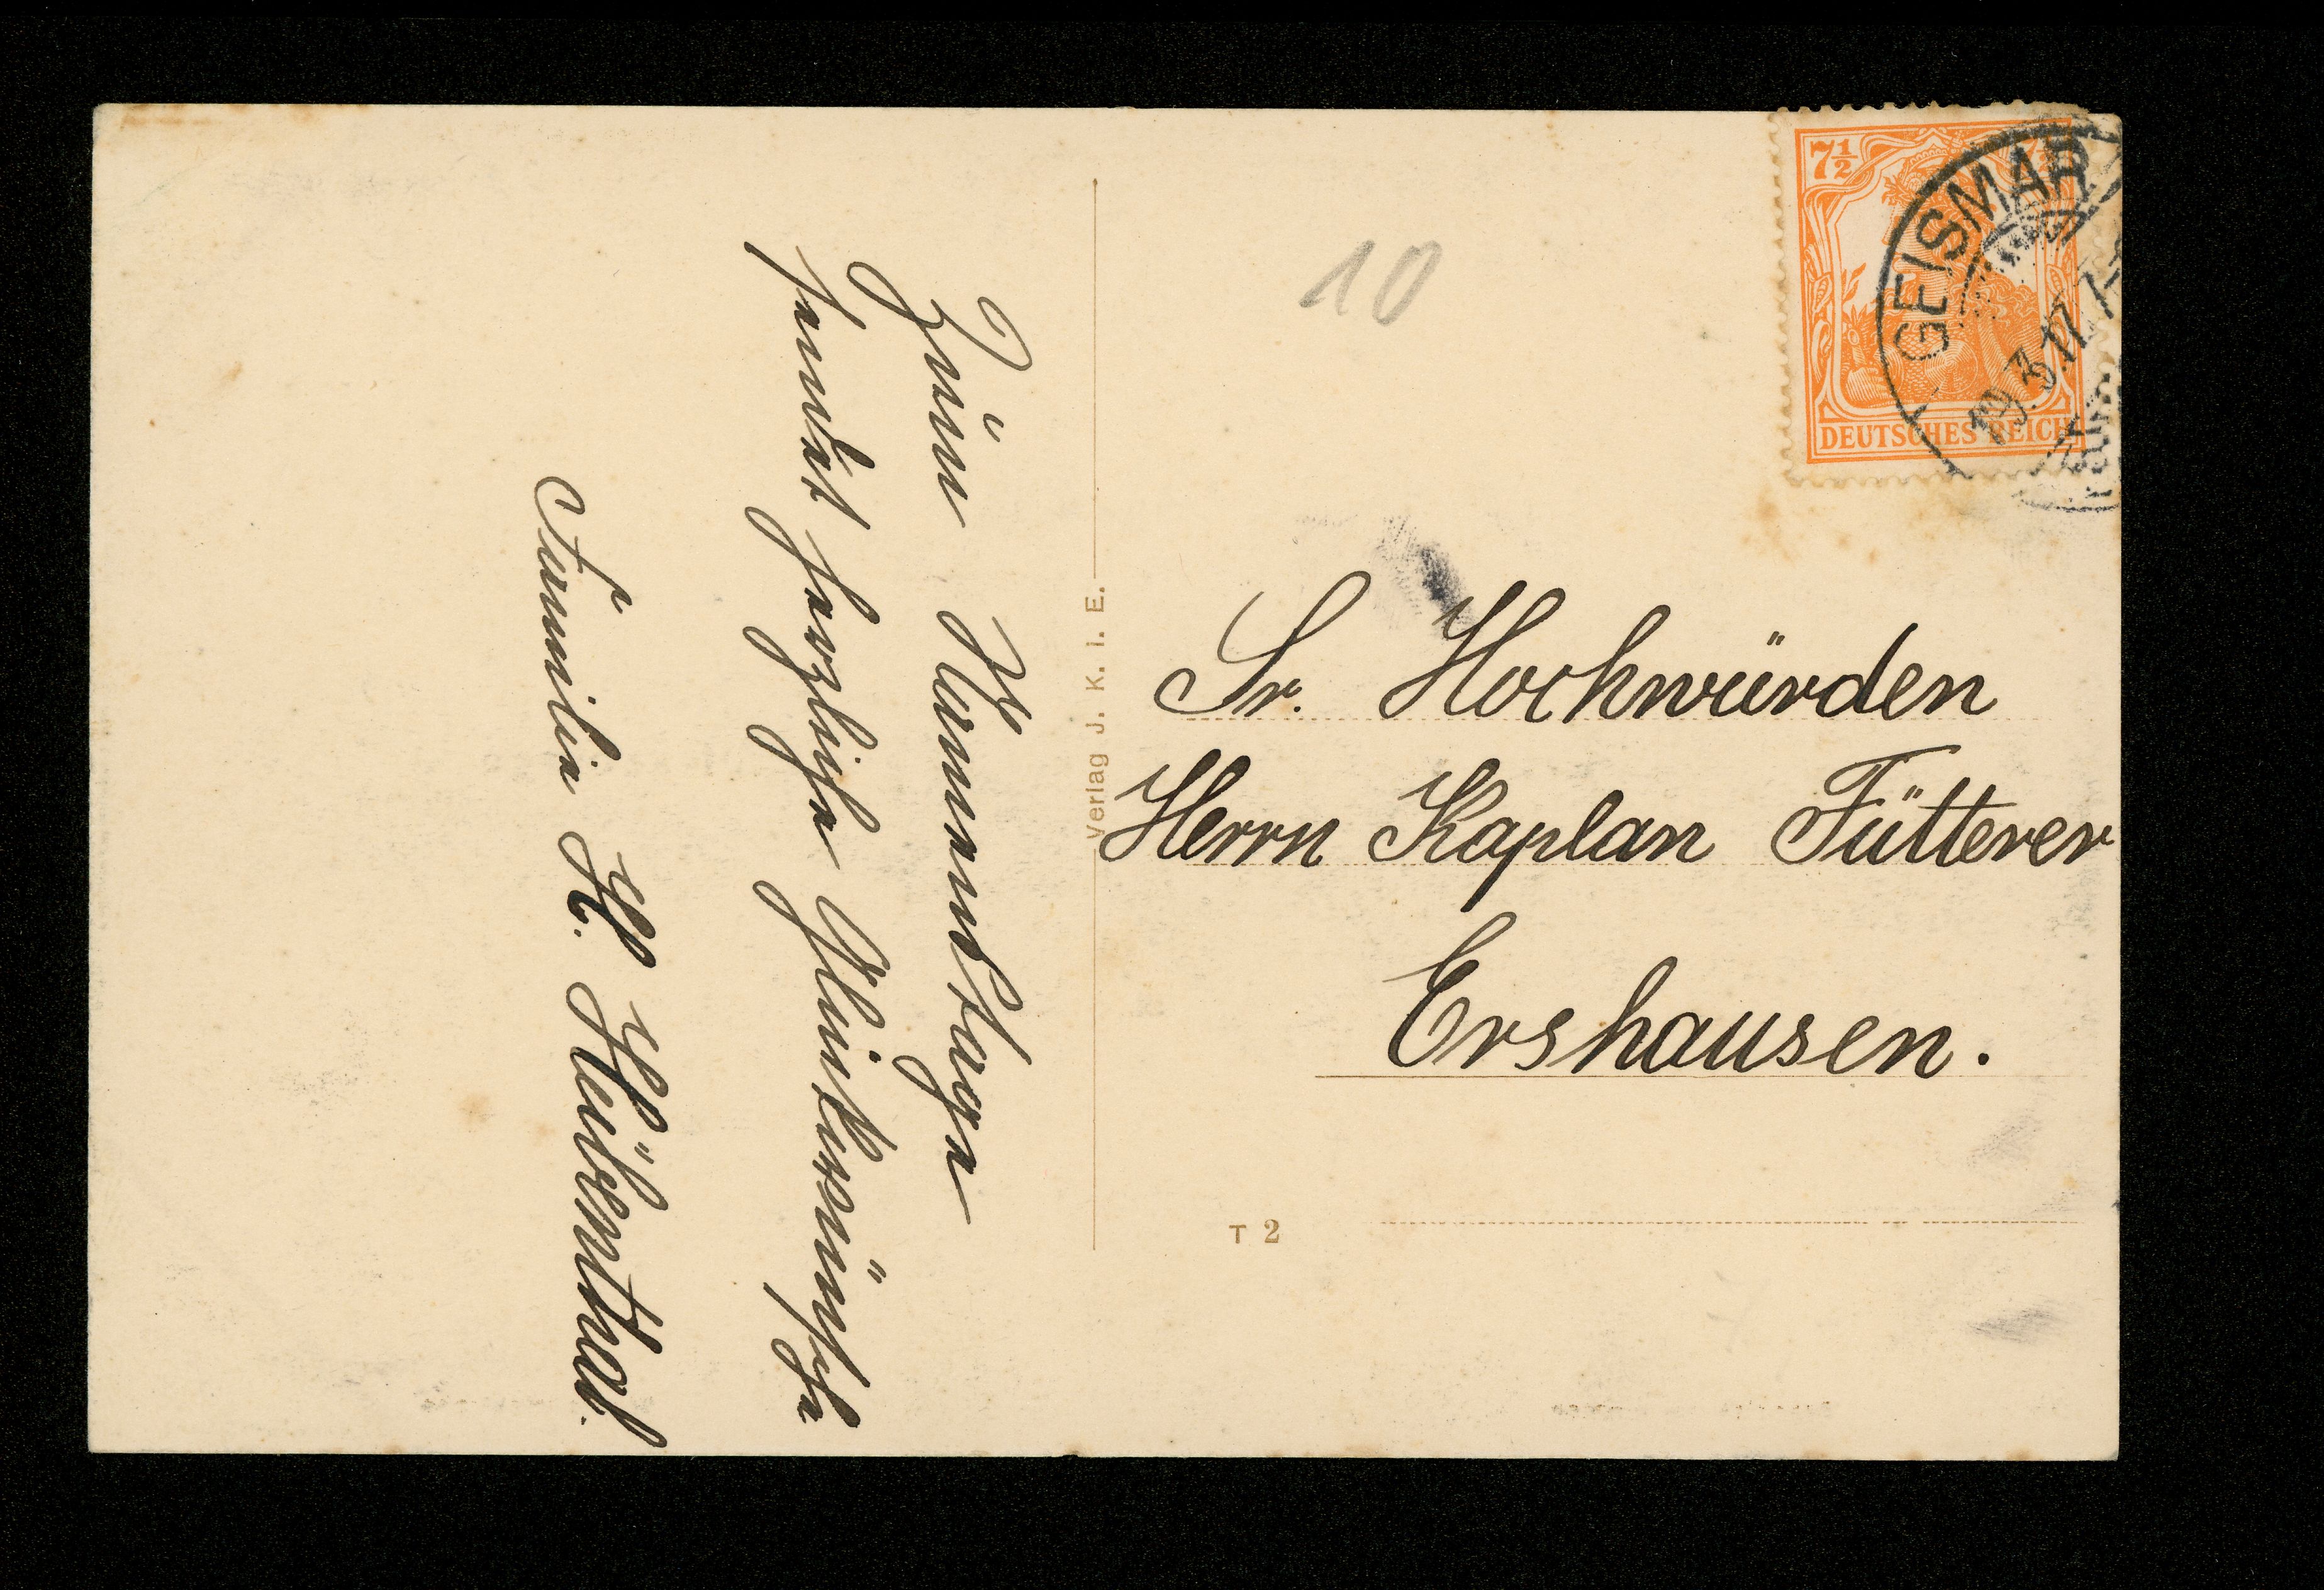 Zum Namenstage
sendet herzliche Glückwünsche
Familie H. Hübenthal.
Verlag J. K. i. E.
10
7½
GEISMAR
19.3.17. 7-
DEUTSCHES REICH
Sr. Hochwürden
Herrn Kaplan Fütterer
Ershausen.
T 2